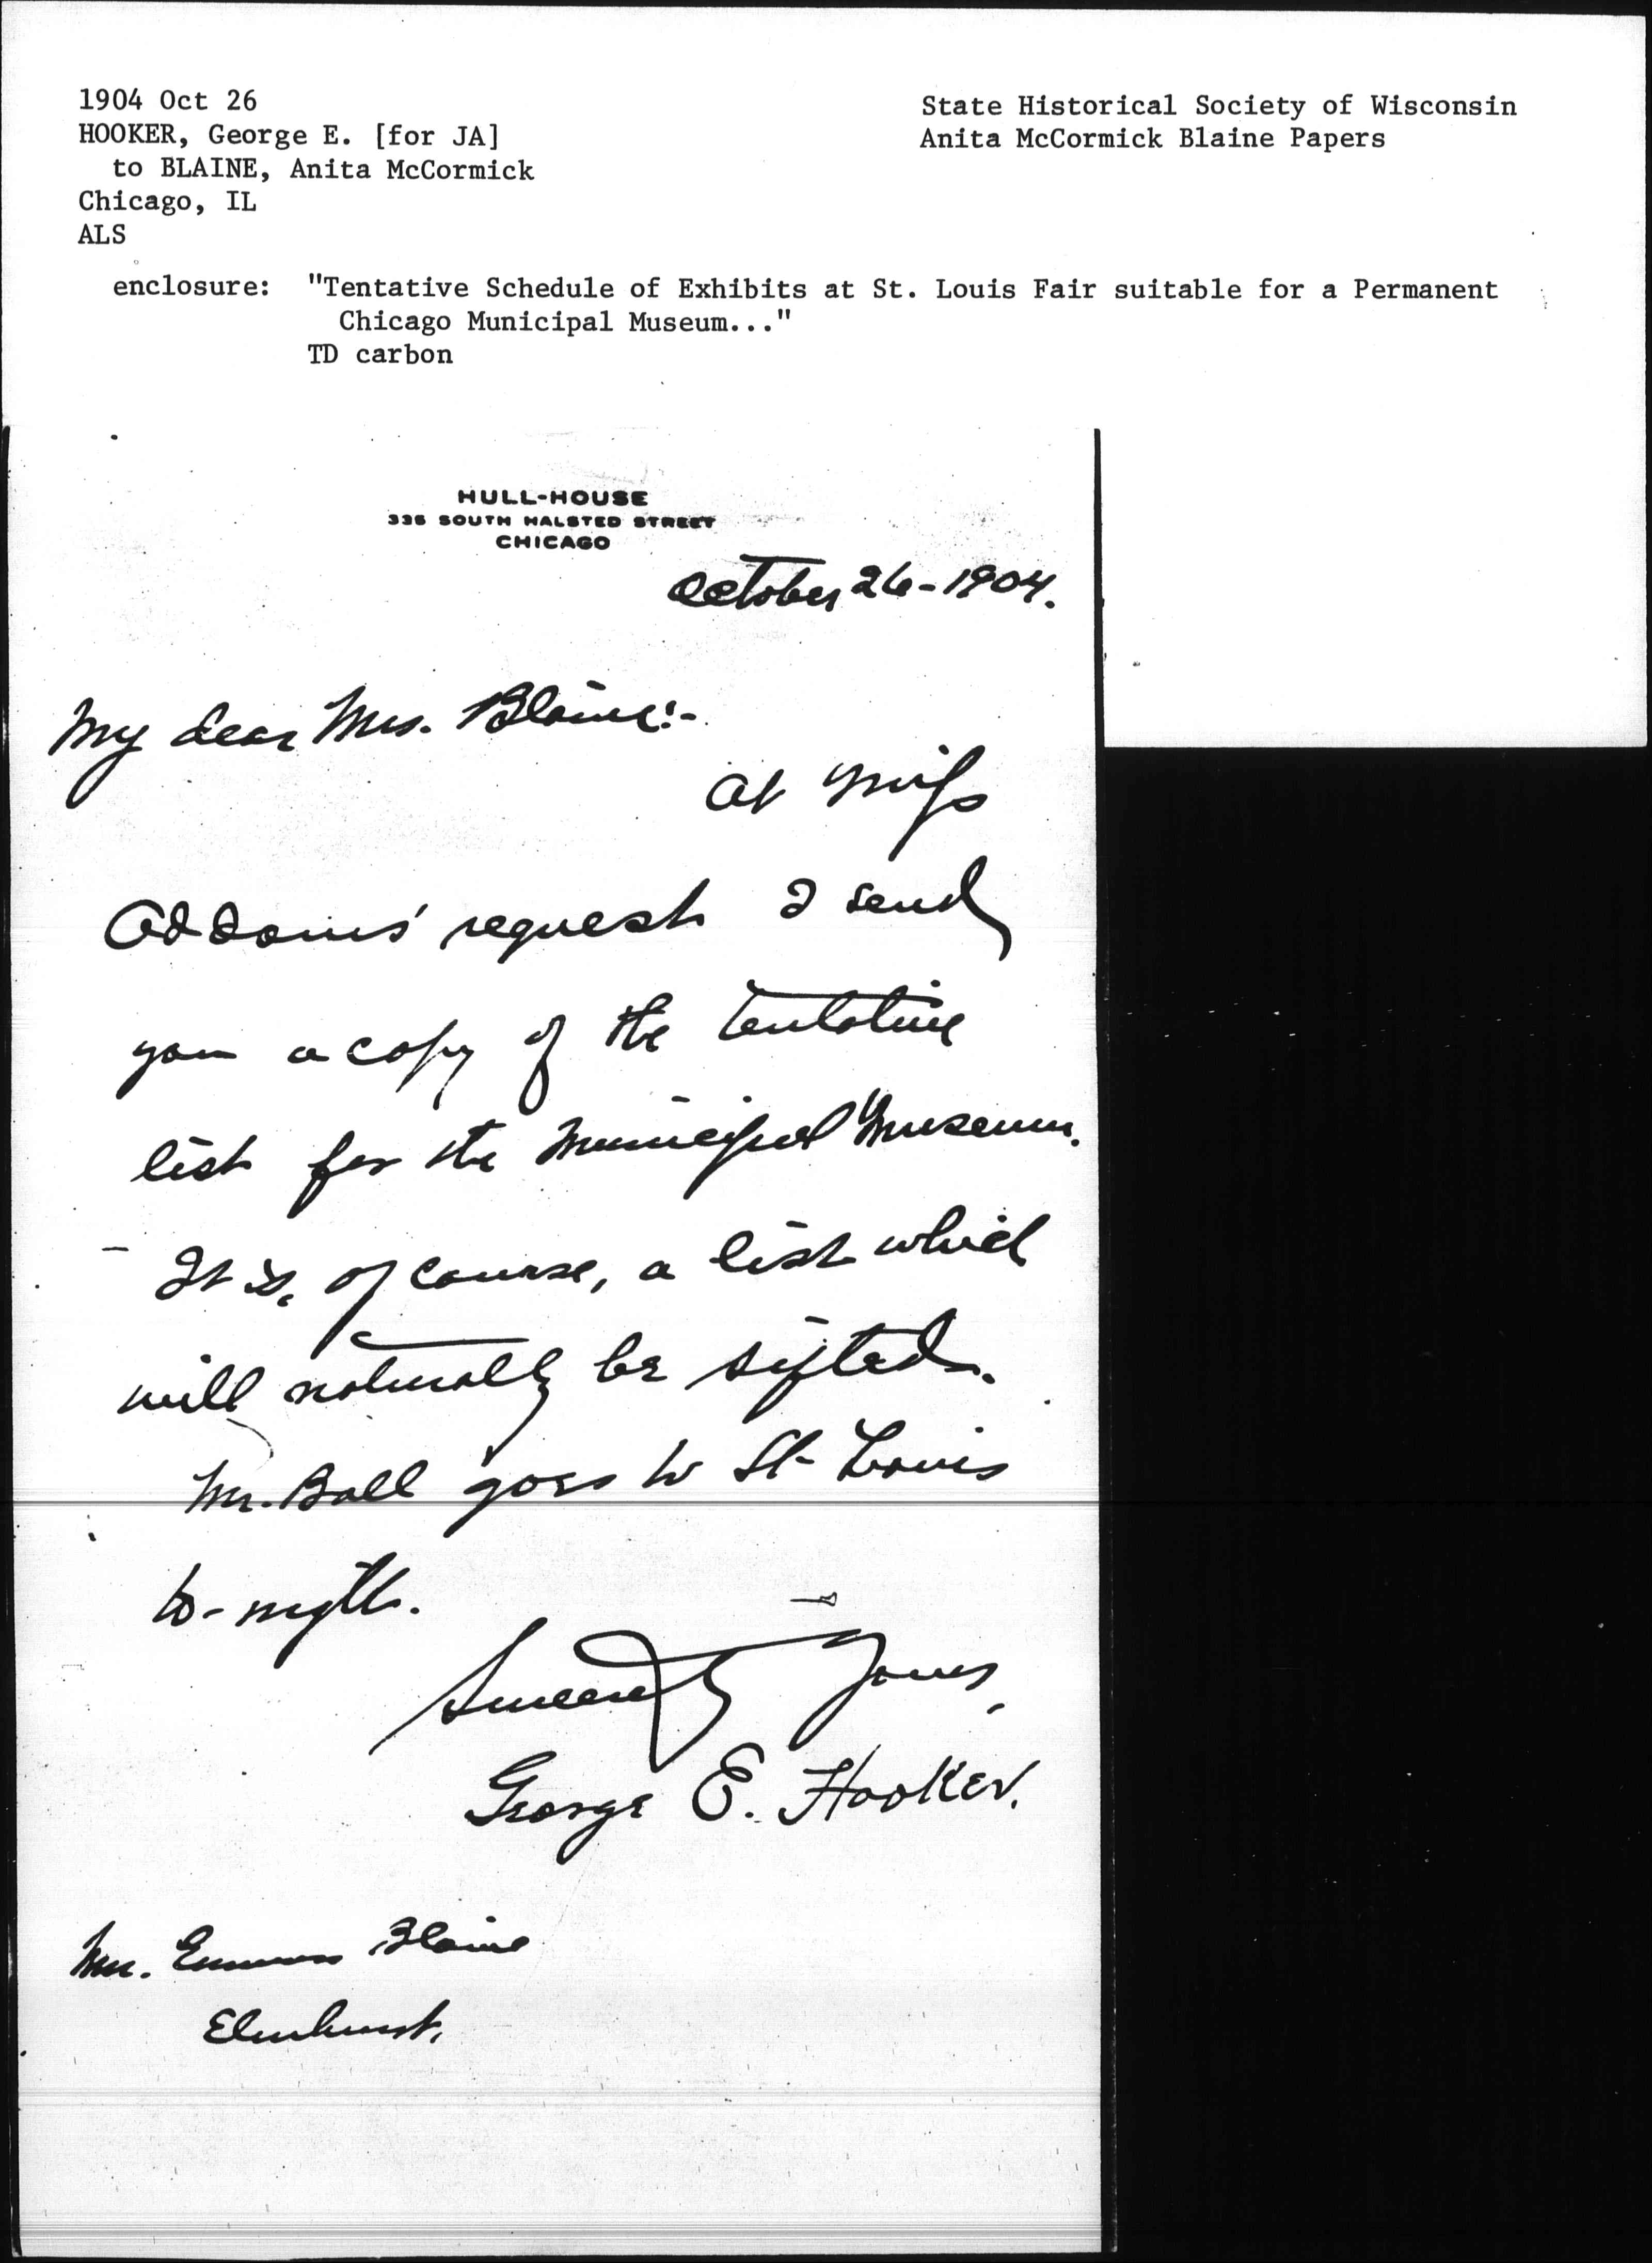 1904 Oct 26
HOOKER, George E. [for JA]
to BLAINE, Anita McCormick
Chicago, IL
ALS
State Historical Society of Wisconsin
Anita McCormick Blaine Papers
enclosure: "Tentative Schedule of Exhibits at St. Louis Fair suitable for a Permanent
Chicago Municipal Museum..."
TD carbon
HULL-HOUSE
335 SOUTH HALSTED STREET
CHICAGO
October 26-1904.
My dear Mrs. Blaine:-
At Miss
Addams' request I send
you a copy of the tentative
list for the Municipal Museum.
It is, of course, a list which
will naturally be sifted.
Mr. Ball goes to St. Louis
to-night.
Sincerely Yours,
George E. Hooker.
Mrs. Emmons Blaine
Elmhurst.